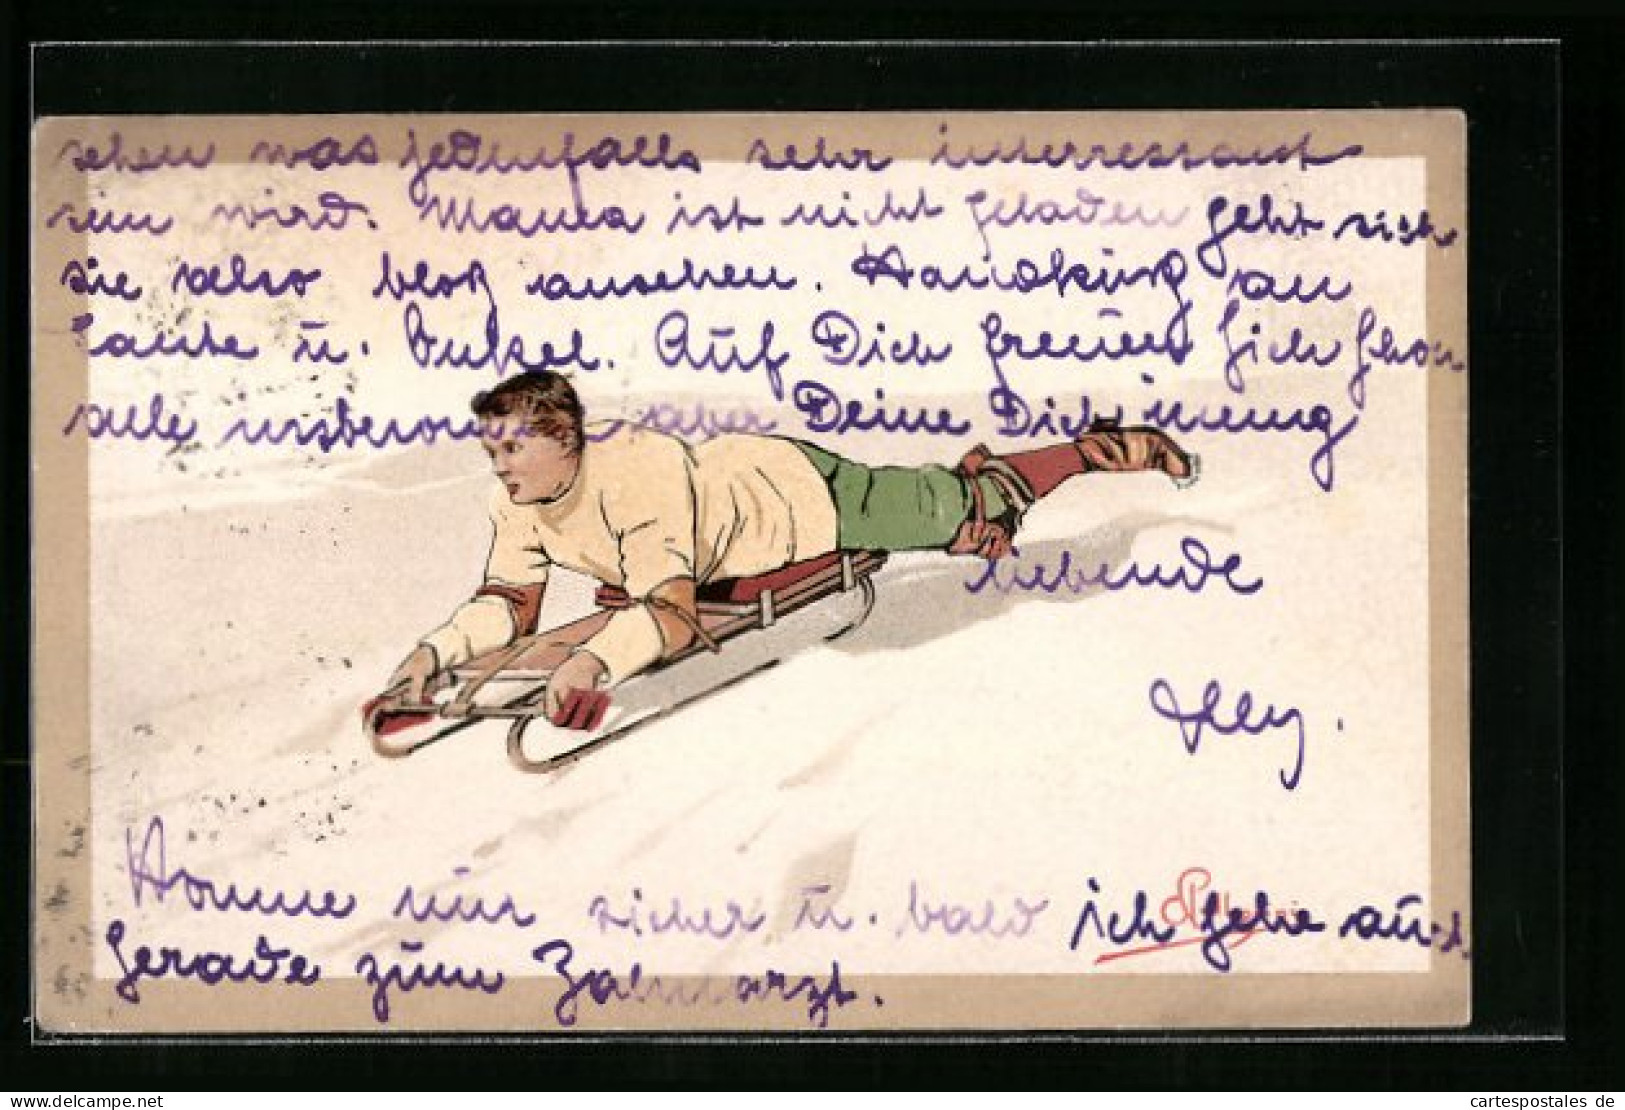 sehen was jedenfalls sehr interressant
sein wird. Mama ist nicht geladen geht sich
sie also bloß ansehen. Handküsse an
Tante u. Onkel. Auf Dich freuen sich schon
alle insbesondere aber Deine Dich innig
liebende
Elly.
Komme nur sicher u. bald ich gehe auch
gerade zum Zahnarzt.
cartespostales de